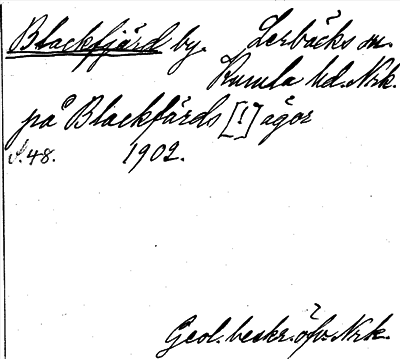 Blackfjärd by. Lerbäcks sn.
Kumla hd. Nrk.
på Blackfärds [!] ägor
s. 48. 1902.
Geol. beskr. öfv. Nrk.